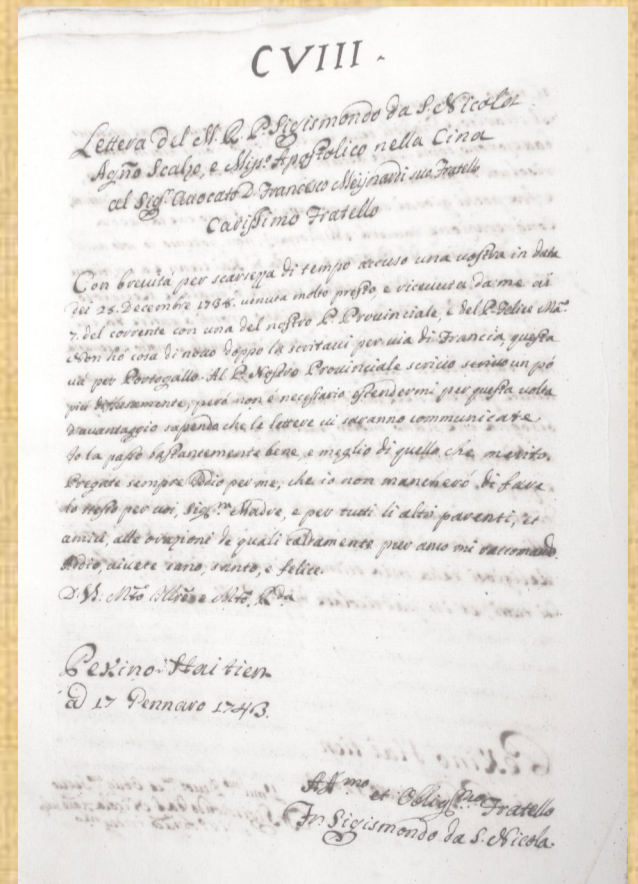 CVIII.
Lettera del M. R. P. Sigismondo da S. Nicola
Agño Scalzo, e Miss.o Apostolico nella Cina
al Sig.r Avvocato D. Francesco Meijnardi suo Fratello
Carissimo Fratello
Con brevità per scarsezza di tempo accuso una vostra in data
dei 28. Decembre 1738. venuta molto presto, e ricevuta da me ai
7. del corrente con una del nostro P. Provinciale, e del P. Felice Ma.
Non hò cosa di novo doppo la scrittavi per via di Francia, questa
và per Portogallo. Al P. Nostro Provinciale scrivo un pò
più diffusamente, però non è necessario estendermi per questa volta
d'avantaggio sapendo che le lettere vi saranno communicate
Io la passo bastancemente bene, e meglio di quello che merito.
Pregate sempre Iddio per me, che io non mancherò di fare
lo stesso per voi, Sig.ra Madre, e per tutti li altri parenti, et
amici, alle orazioni de quali caldamente pur anco mi raccomando.
Addio, vivete sano, santo, e felice.
D. V. Mto Illre e Mto Rda
Pekino Haitien
ad 17 Gennaro 1743.
Aff.mo et Obblig.mo Fratello
Fr. Sigismondo da S. Nicola